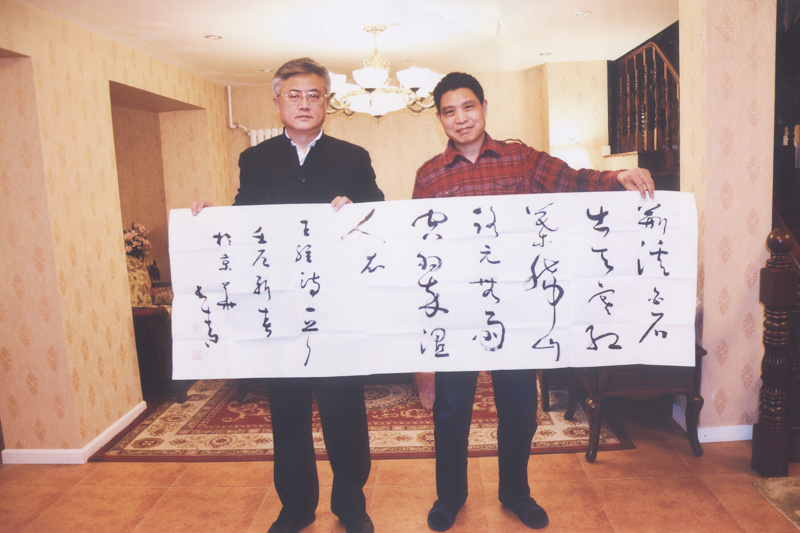 荆溪白石
出天寒红
葉稀山
路元無雨
空翠湿
人衣
王維詩一首
壬辰新春
於京華